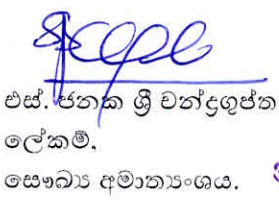 එස්. ජනක ශ්‍රී චන්ද්‍රගුප්ත
ලේකම්.
සෞඛ්‍ය අමාත්‍යංශය.